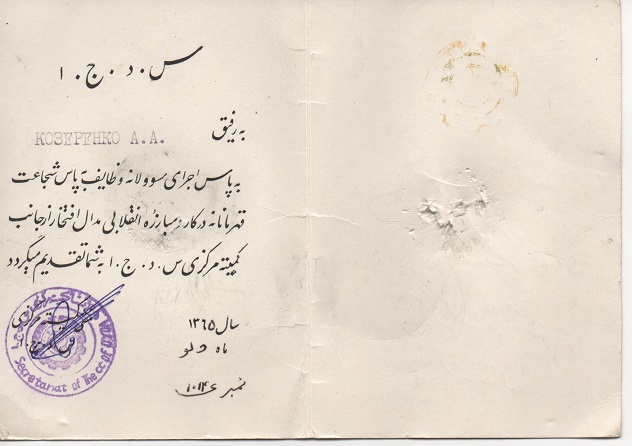 س.د.ج.ا
به رفیق
КОЗЕРЕНКО А.А.
به پاس اجرای مسوولانه وظایف به پاس شجاعت
قهرمانانه در کار و مبارزه انقلابی مدال افتخار از جانب
کمیته مرکزی س.د.ج.ا به شما تقدیم میگردد
سال ۱۳۶۵
ماه دلو
نمبر
Secretariat of The CC of